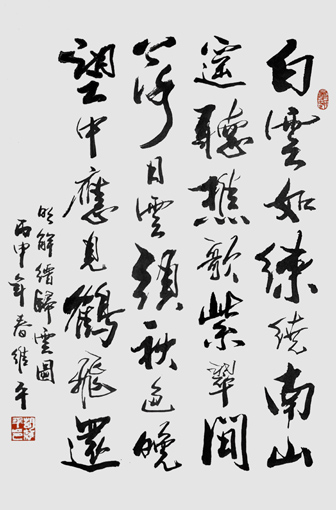 白雲如練繞南山
遙聽樵歌紫翠間
日雲 秋色晚
望中應見鶴飛還
明解縉歸雲圖
丙申年春維平